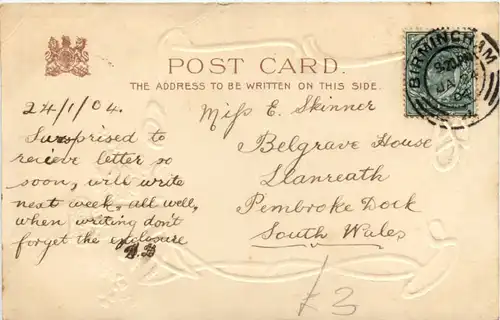 POST CARD.
THE ADDRESS TO BE WRITTEN ON THIS SIDE.
BIRMINGHAM
24/1/04.
Surprised to
recieve letter so
soon, will write
next week, all well,
when writing don't
forget the enclosure
Miss E. Skinner
Belgrave House
Llanreath
Pembroke Dock
South Wales
£3